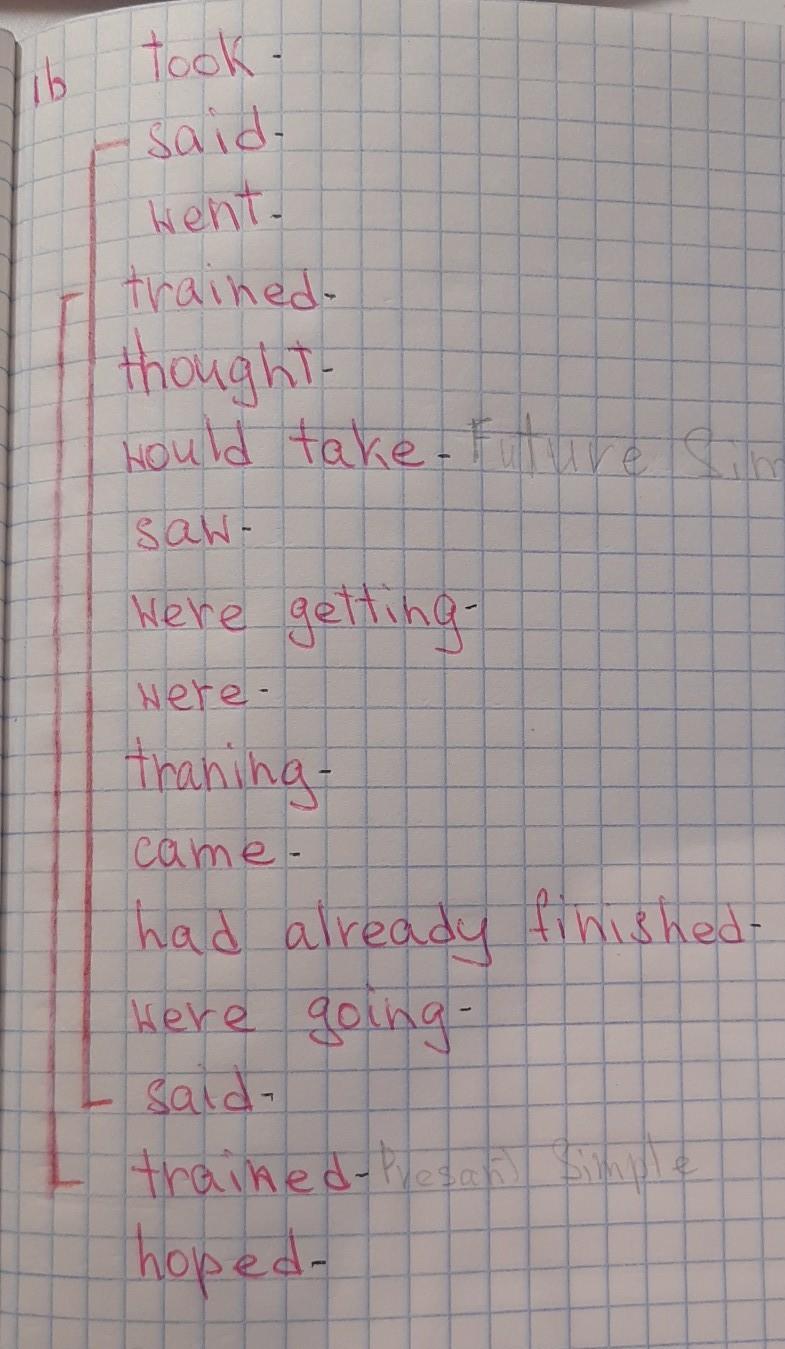 1b took -
said -
went -
trained -
thought -
would take - Future Sim
saw -
were getting -
were -
traning -
came -
had already finished -
were going -
said -
trained - Presant Simple
hoped -